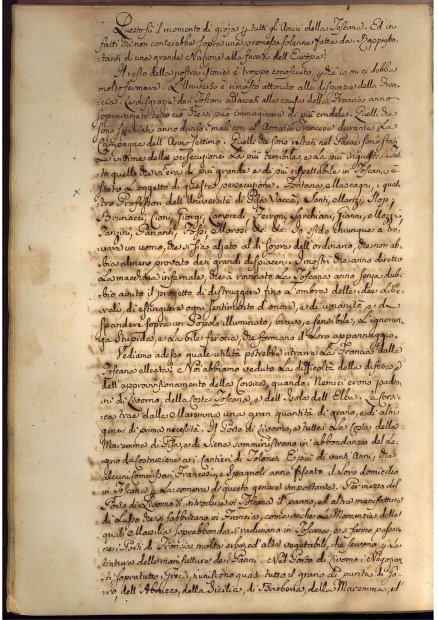 Questo fù il momento di gioja p tutti gli Amici della Toscana. Ed in
fatti chi non conterebbe sopra una promessa solenne fatta da Rappresen
tanti di una grande Nazione alla faccia dell'Europa?
Il resto della nostra Istoria è troppo conosciuto, p che io mi ci debba
molto fermare. L'Universo è rimasto attonito alle disgrazie della Fran
cia. Le disgrazie dei Toscani attaccati alla causa della Francia anno
sopravanzato tutto ciò che si può immaginare di più crudele. Quelli che
sono espatriati anno divisi i mali con l'Armata Francese durante la
Campagna dell'Anno settimo. Quelli che sono restati nel Paese sono stati
le vittime della persecuzione la più terribile, e la più iniqua. Tut
to quello che vi era di più grande e di più rispettabile in Toscana è
stato l'oggetto di questa persecuzione. Fontana, Mascagni, i quat
tro Professori dell'Università di Pisa Vaccà, Santi,
Brunacci, Cioni, Giorgi, Lampredi, Ferroni, Sarchiani, Gianni,
Panzini, Pananti, &c. &c. Io sfido chiunque a tro
vare un uomo, che si sia alzato al di sopra dell'ordinario, che non ab
bia almeno provato dei grandi dispiaceri. I mostri che anno diretto
la macchina infernale, che à rovinato la Toscana anno senza dub
bio avuto il progetto di distruggere fino l'ombra delle idee libe
rali, di estinguere ogni sentimento d'onore, e di umanità e di
spandere sopra un Popolo illuminato, bravo, e sensibile, l'ignoran
za stupida, e la vile ferocia, che formano il loro appannaggio.
Vediamo adesso quale utilità potrebbe ritrarre la Francia dalla
Toscana alleata? Noi abbiamo veduto la difficoltà della difesa, e
dell'approvisionamento della Corsica, quando i Nemici erano padro
ni di Livorno, della Costa Toscana, e dell'Isola dell'Elba. La Corsi
ca trae dalla Maremma una gran quantità di grano, e di altri
generi di prima necessità. Il Porto di Livorno, e tutta la Costa della
Maremma di Pisa, e di Siena somministrano in abbondanza del Le
gno da costruzione a i Cantieri di Tolone. E più di venti Anni, che
alcuni Commissari Francesi, e Spagnoli anno fissato il loro domicilio
in Toscana p la compra di questo genere importante. Per mezzo del
Porto di Livorno s'introduce in Toscana i panni, ed altre manifatture
di Lusso che si fabbricano in Francia, come anche le Mercanzie delle
quali Marsilia soprabbonda si radunano in Toscana, e si fanno passare
nei Porti di Francia molte erbe, ed altri vegetabili, che servono p la
tintura delle manifatture dei Panni. Nel Porto di Livorno i Negozian
ti sopratutto Greci, riuniscono quasi tutto il grano di punta di fer
ro, dell'Abruzzo, della Sicilia, di Barberia, della Maremma, ed